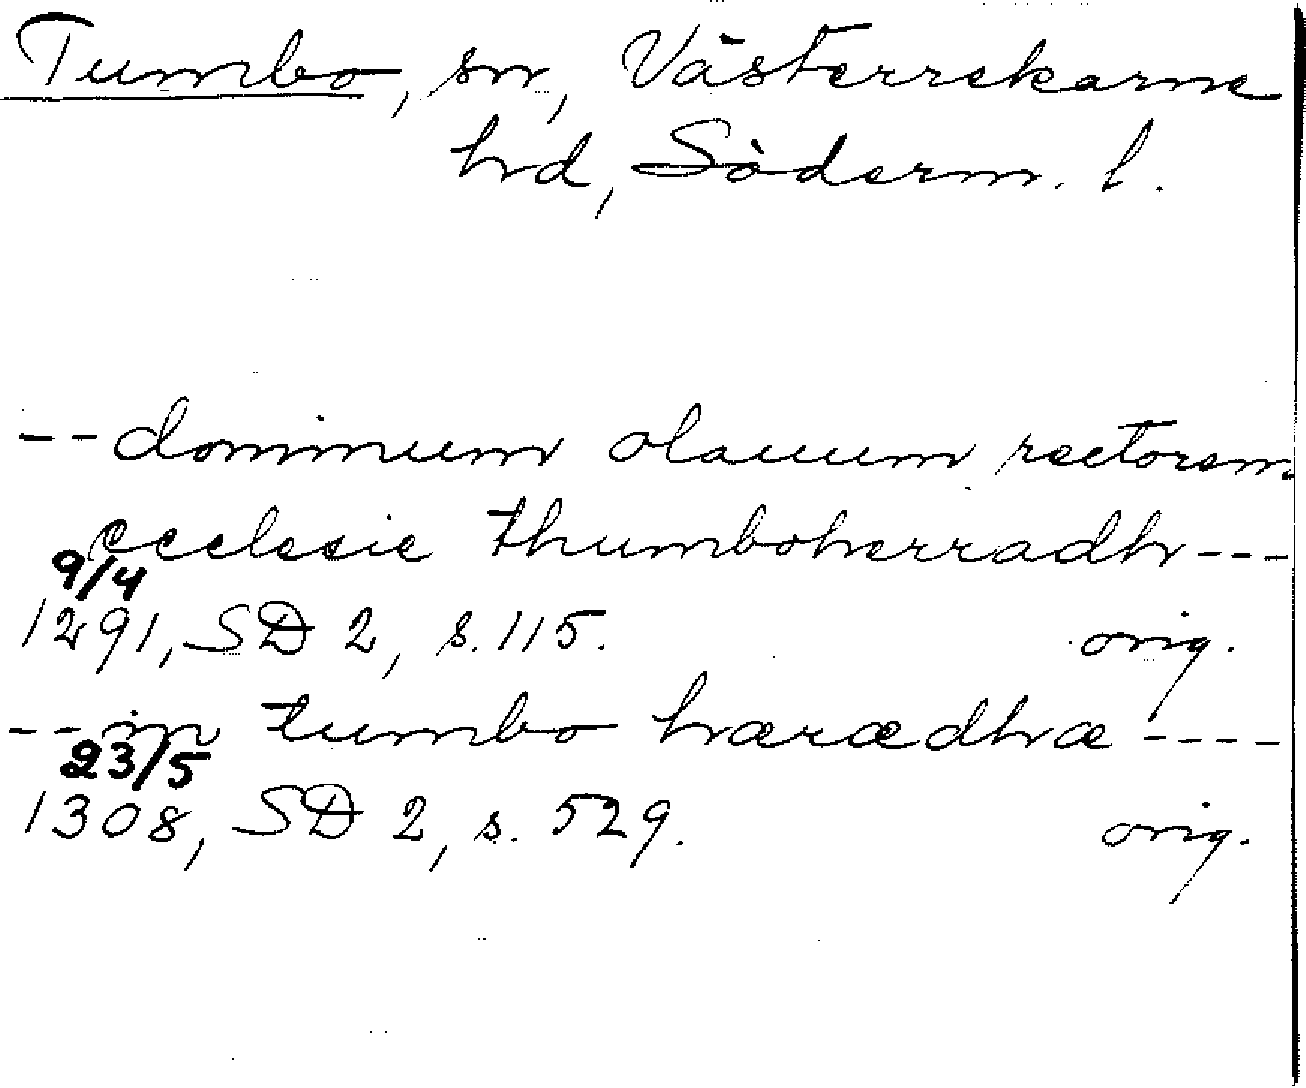 Tumbo, sn, Västerrekarne
hd, Söderm. l.
-- dominum olauum rectorem
ecclesie thumboherradh ---
9/4
1291, SD 2, s. 115. orig.
-- in tumbo hæræedhæ ----
23/5
1308, SD 2, s. 529. orig.